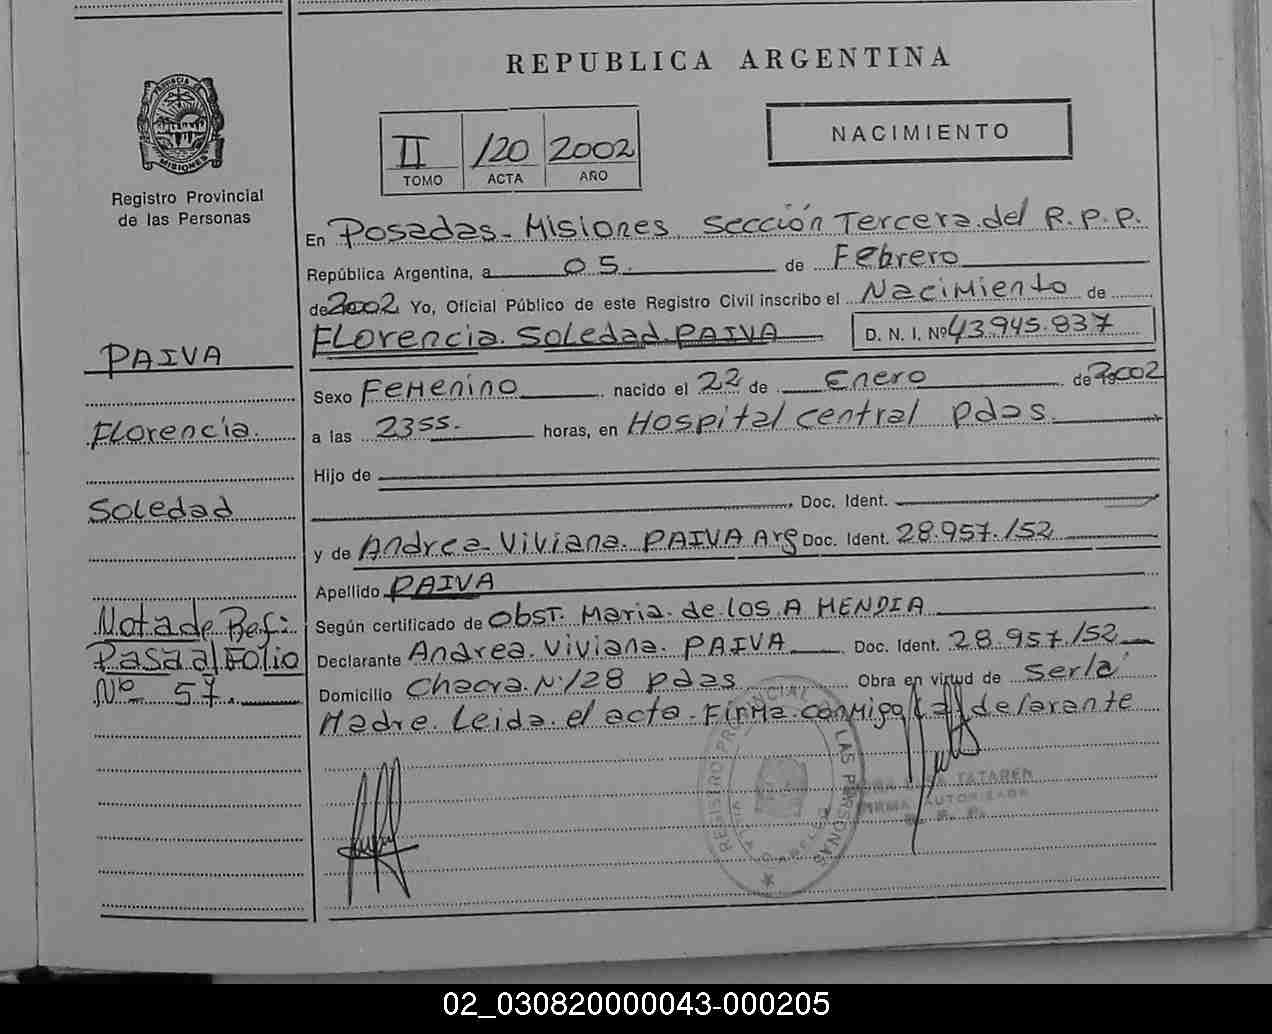 REPUBLICA ARGENTINA
PROVINCIA DE
MISIONES
Registro Provincial
de las Personas
II /20 2002
TOMO ACTA AÑO
NACIMIENTO
En Posadas - Misiones Sección Tercera del R.P.P.
República Argentina, a 05. de Febrero
de 2002 Yo, Oficial Público de este Registro Civil inscribo el Nacimiento de
Florencia Soledad PAIVA D. N. I. Nº 43.945.837
Sexo Femenino nacido el 22 de Enero de 2002
a las 2355. horas, en Hospital central pdas.
Hijo de
, Doc. Ident.
y de Andrea Viviana PAIVA Arg Doc. Ident. 28.957./52
Apellido PAIVA
Según certificado de Obst. Maria de los A MENDIA
Declarante Andrea Viviana PAIVA Doc. Ident. 28.957./52
Domicilio Chacra Nº /28 pdas Obra en virtud de Serla
Madre Leida el acta Firma conmigo la delarante
PAIVA
Florencia
Soledad
Nota de Ref:
Pasa al Folio
Nº 57.
REGISTRO PROVINCIAL LAS PERSONAS
TATAREN
FIRMA AUTORIZADA
02_030820000043-000205